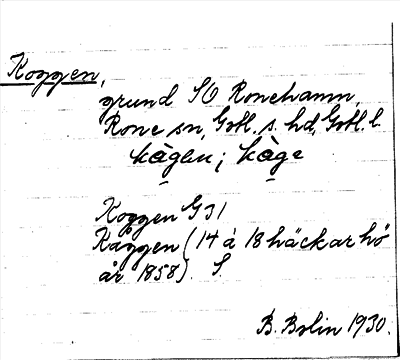 Koggen,
grund SO Ronehamn,
Rone sn, Gotl. s. hd, Gotl. l.
kågen; kåge
Koggen G 31
Kåggen (14 à 18 häckar hö
år 1858). S.
B. Bolin 1930.